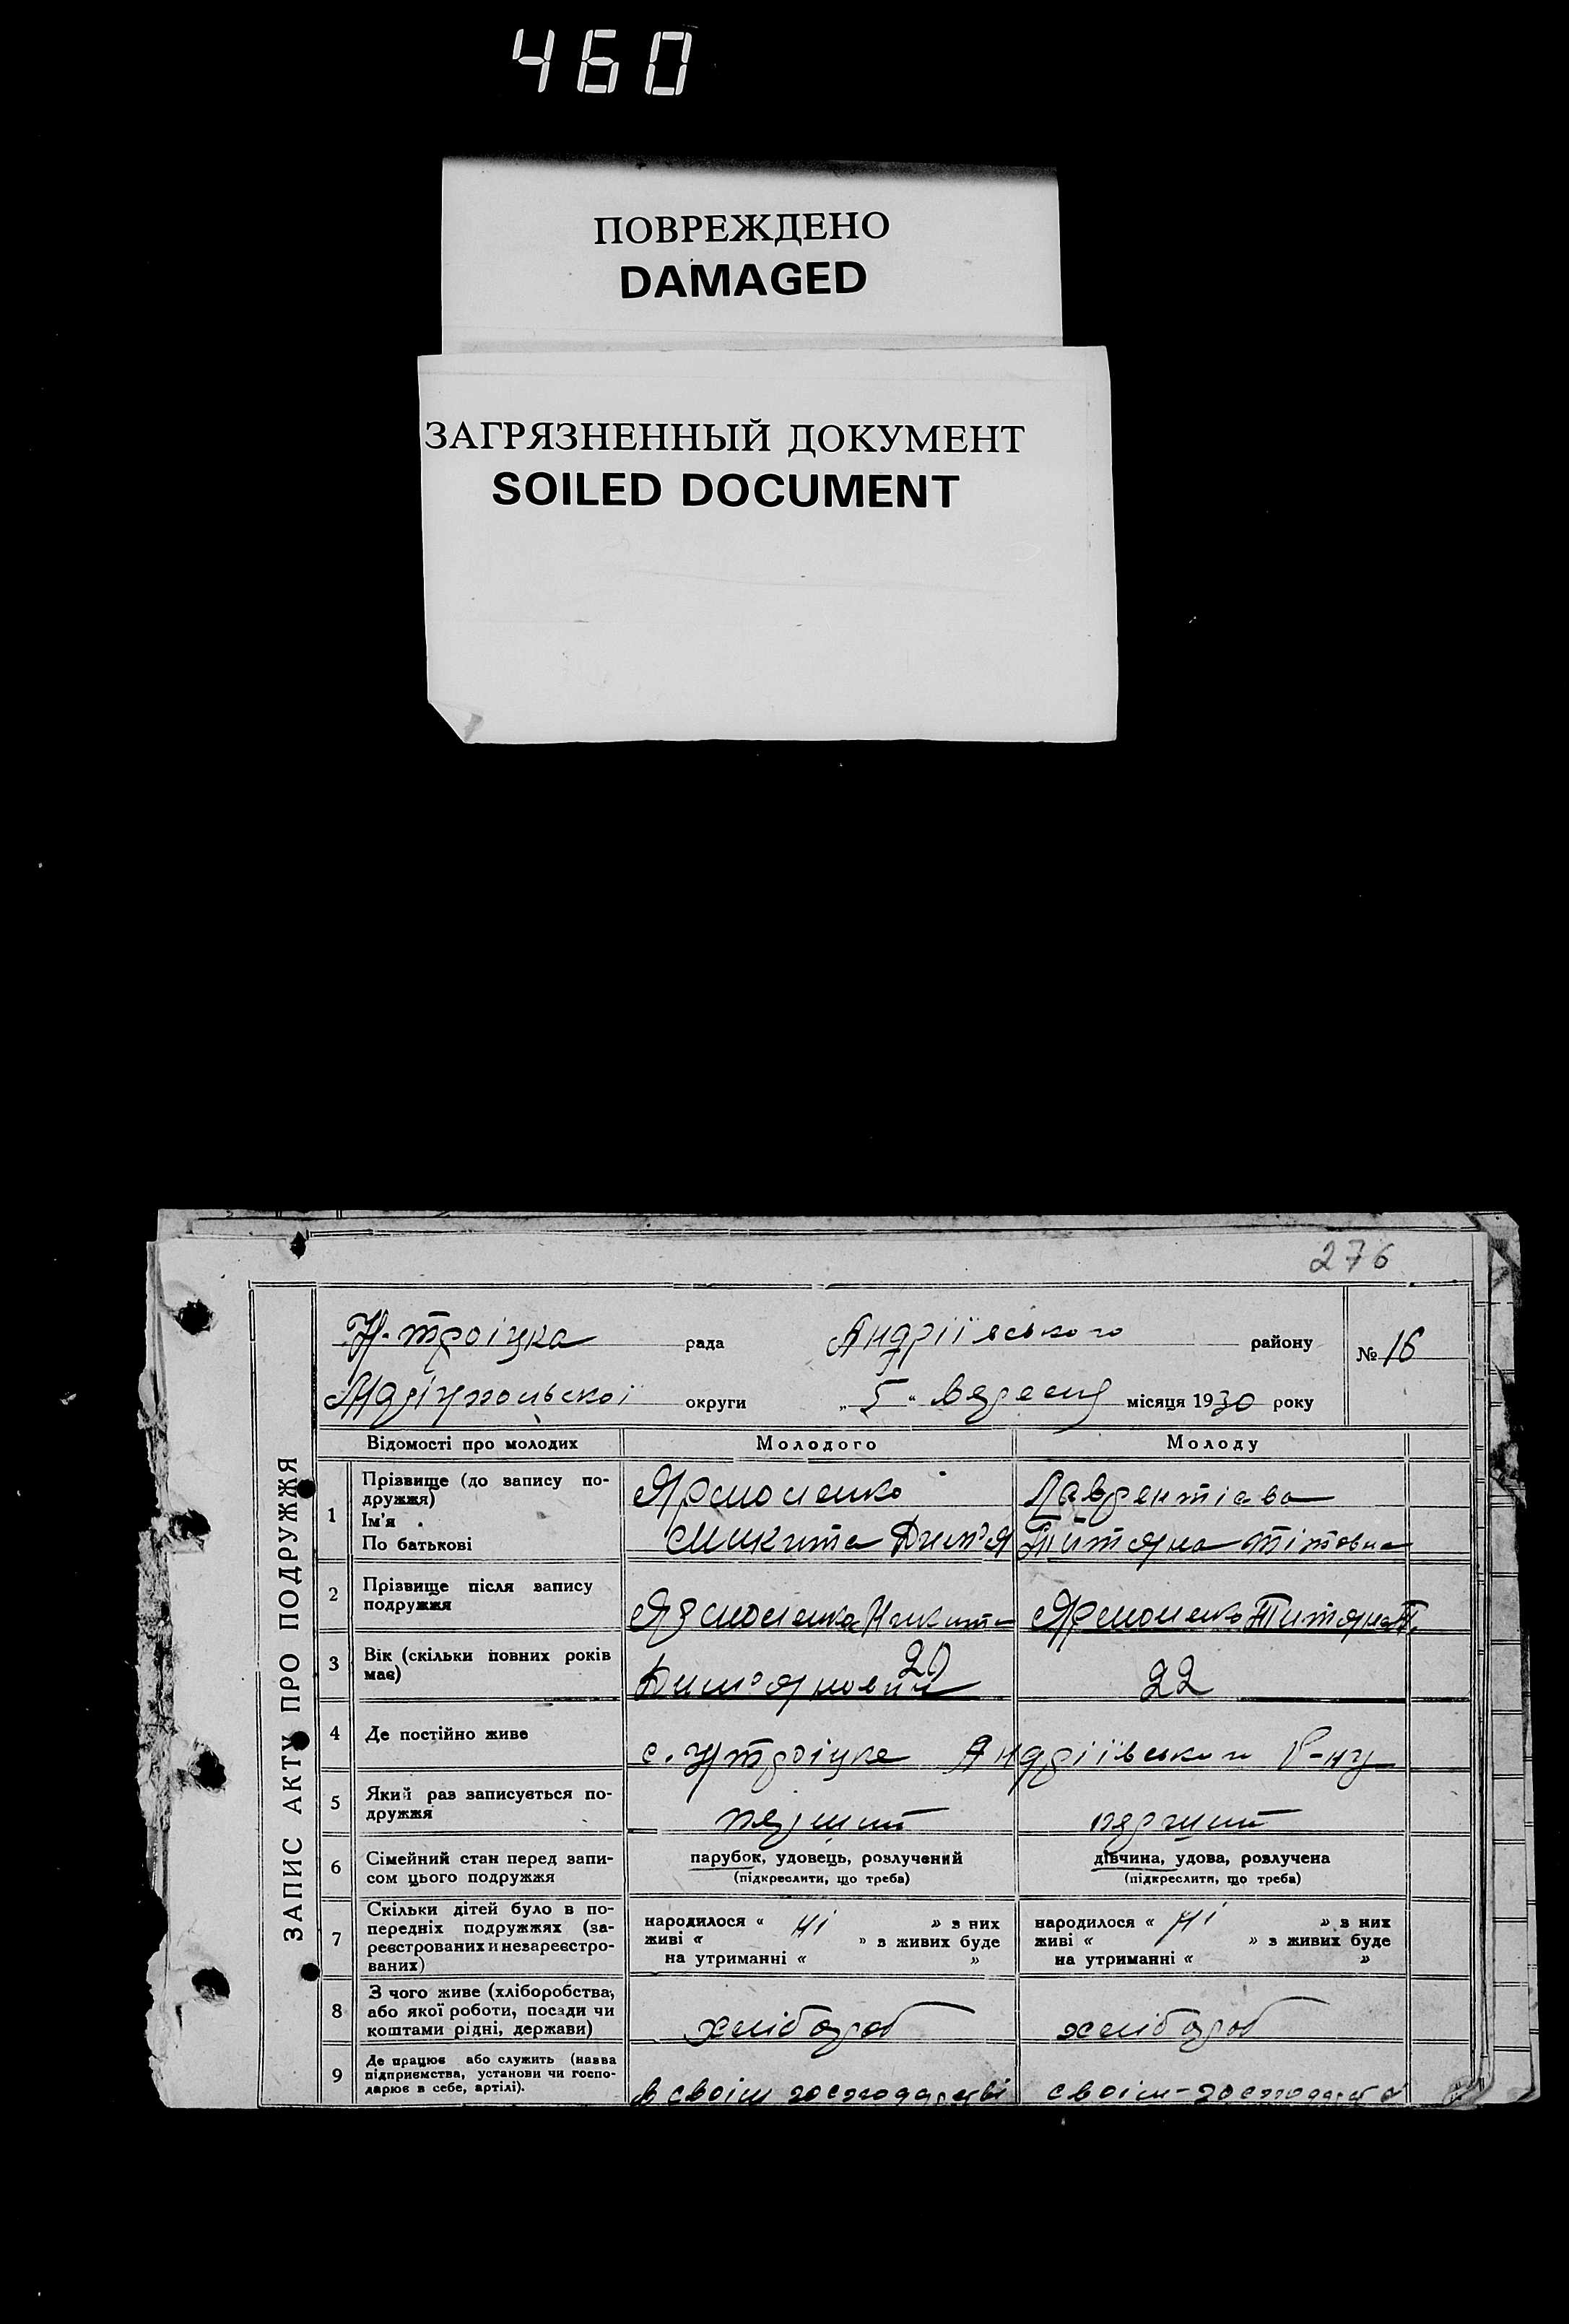 460
ПОВРЕЖДЕНО
DAMAGED
ЗАГРЯЗНЕННЫЙ ДОКУМЕНТ
SOILED DOCUMENT
276
ЗАПИС АКТУ ПРО ПОДРУЖЖЯ
Н-троіцка рада Андріївського району № 16
Маріупольської округи „5“ вересня місяця 1930 року
Відомості про молодих Молодого Молоду
1 Прізвище (до запису подружжя) Ярмоленко Лаврентієва
Ім'я
По батькові Микита Дим'я Титяна Тітовна
2 Прізвище після запису подружжя Ярмоленко Никита Ярмоленко Титяна Т.
3 Вік (скільки повних років має) Дим'янович 20 22
4 Де постійно живе с. Нтроіцке Андріївського Р-ну
5 Який раз записується подружжя перший перший
6 Сімейний стан перед записом цього подружжя парубок, удовець, розлучений дівчина, удова, розлучена
(підкреслити, що треба) (підкреслити, що треба)
7 Скільки дітей було в попередніх подружжях (зареєстрованих и незареєстрованих) народилося « ні » з них народилося « ні » з них
живі « » з живих буде живі « » з живих буде
на утриманні « » на утриманні « »
8 З чого живе (хліборобства, або якої роботи, посади чи коштами рідні, держави) хлібороб хлібороб
9 Де працює або служить (назва підприємства, установи чи господарює в себе, артілі). в своім господарстві своім-господарст